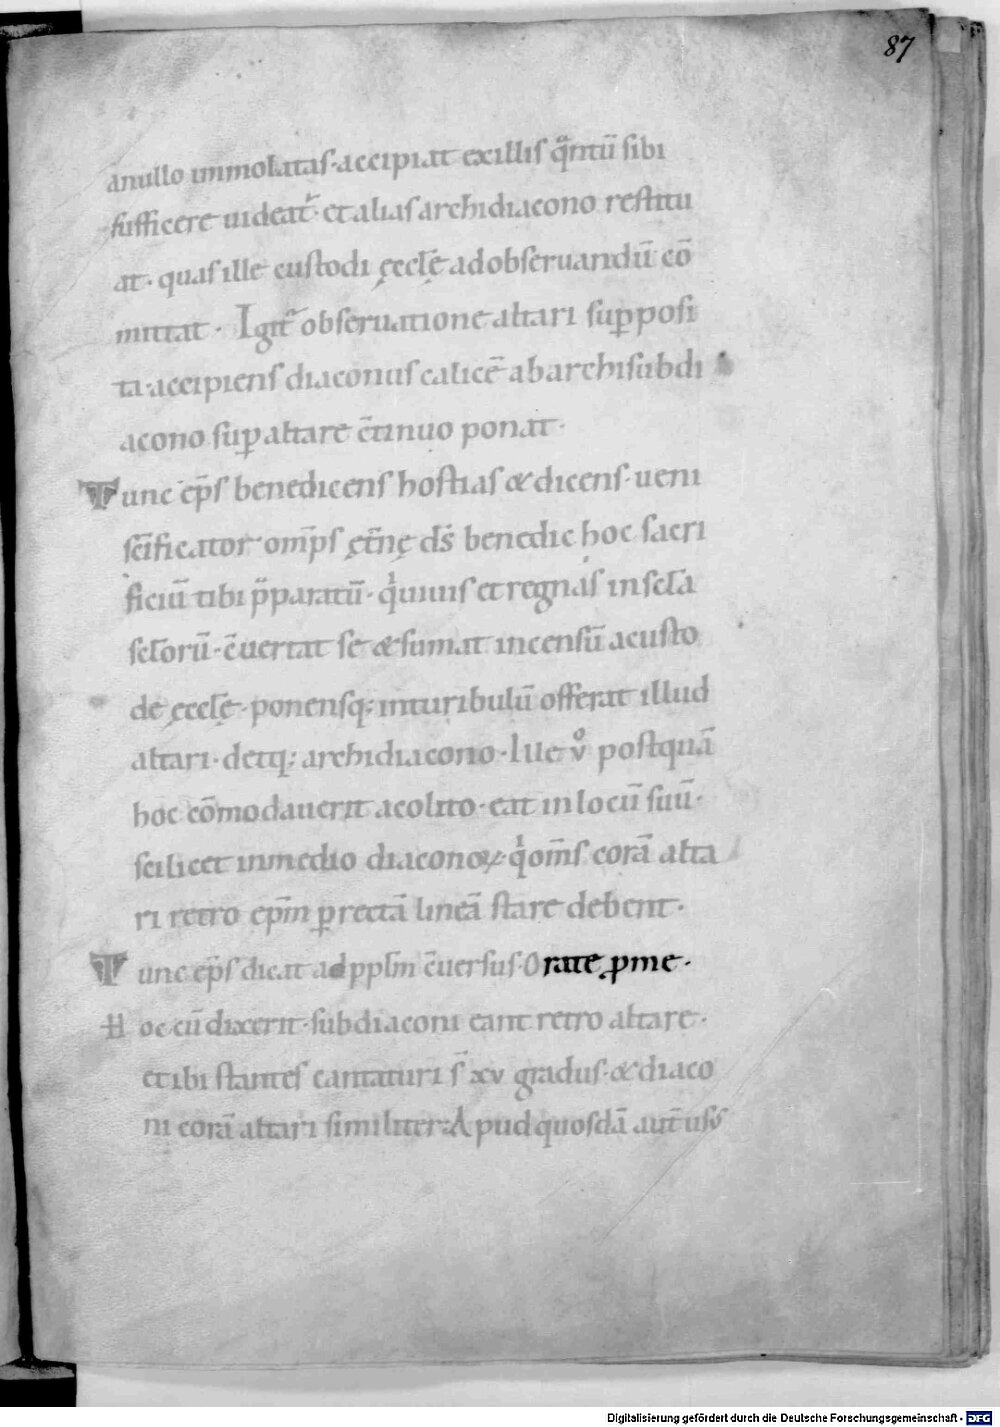 87
anullo immolatas·accipiat exillis q̄ntū sibi
sufficere uideat̄·et alias archidiacono restitu
at·quas ille custodi ęccl̄ę adobseruandū cō
mittat· Igit̄ obseruatione altari sup̱posi
ta·accipiens diaconus calicē abarchisubdi
acono sup̱ altare c̄tinuo ponat·
Tunc ep̄s benedicens hostias &dicens·ueni
sc̄ificator om̄ps ęt̄nę d̄s benedic hoc sacri
ficiū tibi p̄paratū·qͥuiuis et regnas insecl̄a
secl̄orū·c̄uertat se &sumat incensū acusto
de ęccl̄ę·ponensq; inturibulū offerat illud
altari·detq; archidiacono·Ille v̊ postquā
hoc cōmodauerit acolito·eat inlocū suū·
scilicet inmedio diaconoꝝ·qͥom̄s corā alta
ri retro ep̄m p̱rectā lineā stare debent·
Tunc ep̄s dicat ad pp̄lm c̄uersus·Orate p̱me·
Hoc cū dixerit·subdiaconi eant retro altare·
et ibi stantes cantaturi s̄ xv gradus·&diaco
ni corā altari similiter·Apud quosdā aut̄ usus
Digitalisierung gefördert durch die Deutsche Forschungsgemeinschaft - DFG